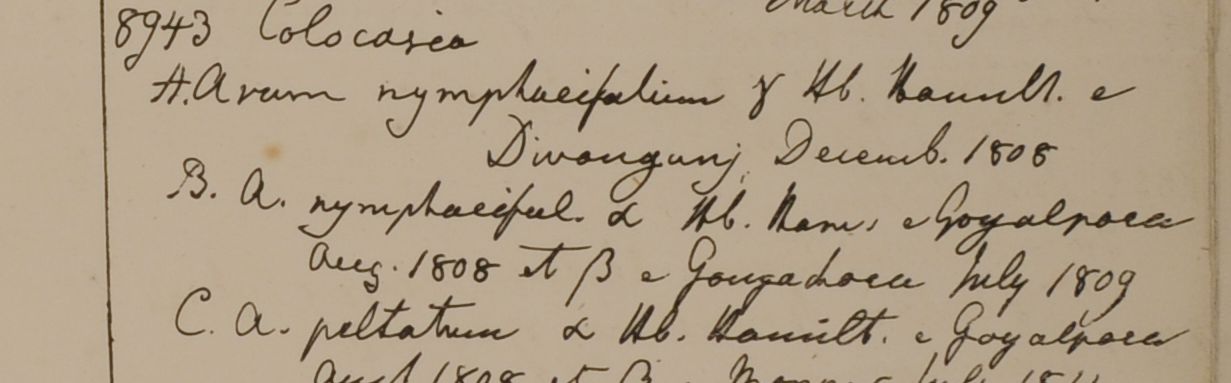 March 1809
8943 Colocasia
A. Arum nymphaeifolium γ Hb. Hamilt. e
Divangunj Decemb. 1808
B. A. nymphaeifol. α Hb. Ham. e Goyalpara
Aug. 1808 et β e July 1809
C. A. peltatum α Hb. Hamilt. e Goyalpara
Aug 1808 et β e July